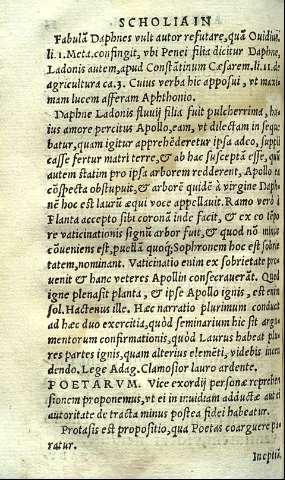 SCHOLIA IN
Fabulā Daphnes vult autor refutare, quā Ouidius
li. 1. Meta. confingit, vbi Penei filia dicitur Daphne,
Ladonis autem, apud Constātinum Cæsarem. li. 11. de
agricultura ca. 3. Cuius verba hic apposui, vt maxi
mam lucem afferam Aphthonio.
Daphne Ladonis fluuij filia fuit pulcherrima, hu
ius amore percitus Apollo, eam, vt dilectam in seque
batur, quam igitur apprehēderet ipsa adeo, suppli
casse fertur matri terre, & ab hac susceptā esse, quā
autem statim pro ipsa arborem redderent, Apollo ea
cōspecta obstupuit, & arborē quidē à virgine Daph
nē hoc est laurū æqui voce appellauit. Ramo verò à
Planta accepto sibi coronā inde facit, & ex eo tēpo
re vaticinationis signū arbor fuit, & quod nō minus
cōueniens est, puellā quoq; Sophronem hoc est sobrie
tatem, nominant. Vaticinatio enim ex sobrietate pro
uenit & hanc veteres Apollin consecrauerāt. Quod
igne plena sit planta, & ipse Apollo ignis, est enim
sol. Hactenus ille. Hæc narratio plurimum conducit
ad hæc duo exercitia, quòd seminarium hic sit argu
mentorum confirmationis, quòd Laurus habeat plu
res partes ignis, quam alterius elemēti, videbis incen
dendo. Lege Adag. Clamosior lauro ardente.
POETARVM. Vice exordij personæ reprehen
sionem proponemus, vt ei in inuidiam adductæ aut ei
autoritate detracta minus postea fidei habeatur.
Protasis est propositio, qua Poetas coarguere pa
ratur.
Ineptiū